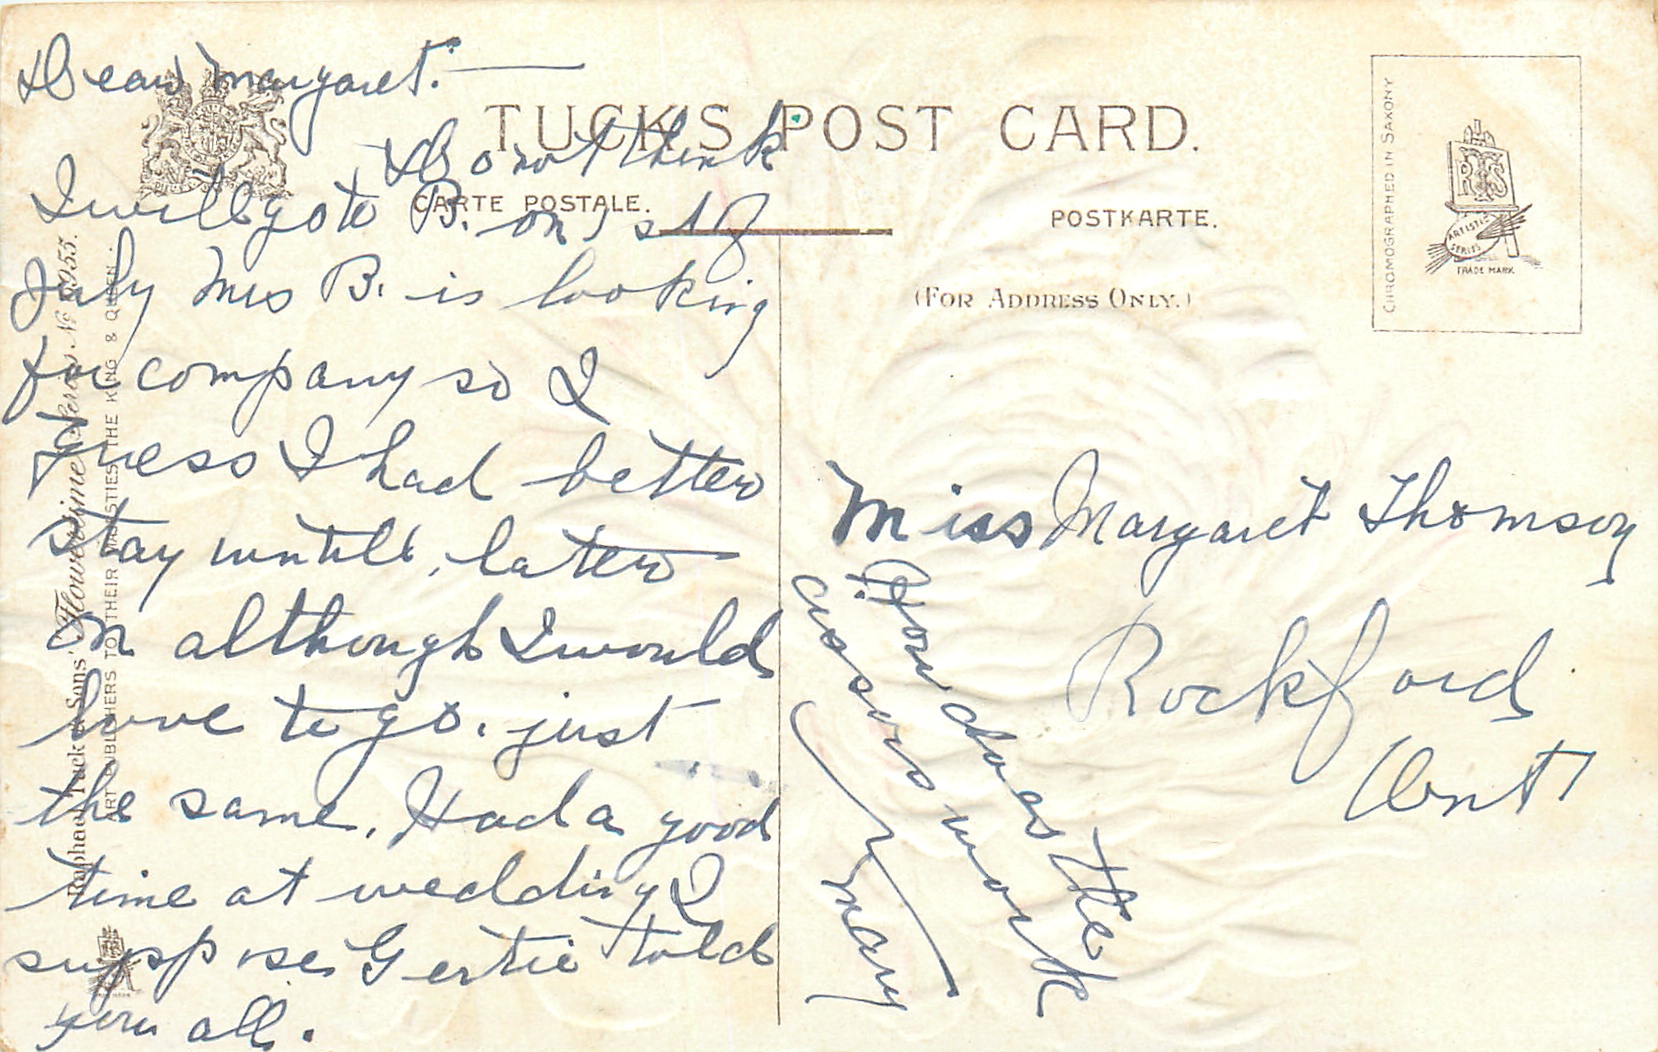 Dear Margaret.—
Do not think
I will go to B. on 1st of
July Mrs B. is looking
for company so I
guess I had better
stay untill, later
on although I would
love to go. just
the same. Had a good
time at wedding I
suppose Gertie told
you all.
How does the
assors work
Mary
TUCK'S POST CARD.
CARTE POSTALE.
POSTKARTE.
(FOR ADDRESS ONLY.)
Miss Margaret Thomson
Rockford
Ont
CHROMOGRAPHED IN SAXONY
RTS
ARTISTIC
SERIES
TRADE MARK
Raphael Tuck & Sons' "Flowerime" Series. No
ART PUBLISHERS TO THEIR MAJESTIES THE KING & QUEEN.